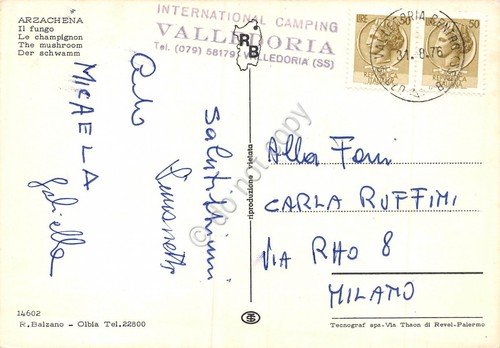 ARZACHENA
Il fungo
Le champignon
The mushroom
Der schwamm
INTERNATIONAL CAMPING
VALLEDORIA
Tel. (079) 58179 VALLEDORIA (SS)
RB
LIRE 50
31.8.76
Salutissimi
Simonetta
Carlo
MICAELA
Gabriella
Alla Fam
CARLA RUFFINI
VIA RHO 8
MILANO
riproduzione vietata
do not copy
14602
R. Balzano - Olbia Tel. 22800
Tecnograf spa - Via Thaon di Revel - Palermo